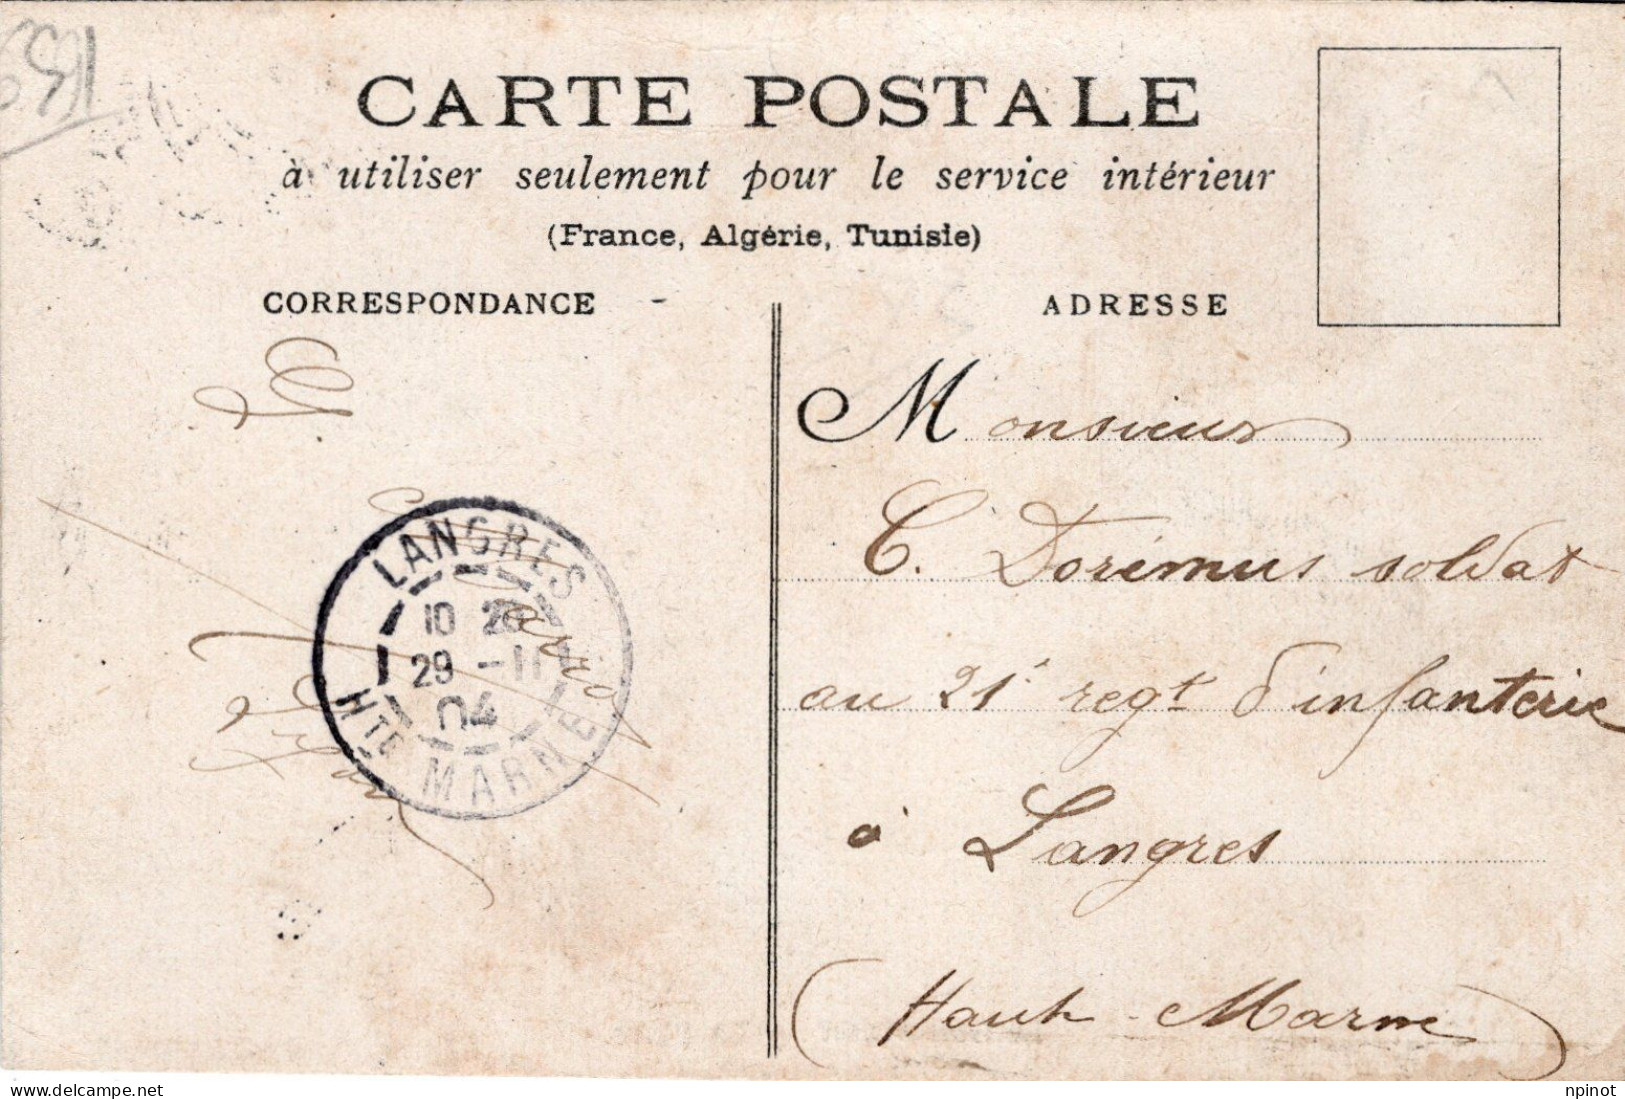 CARTE POSTALE
à utiliser seulement pour le service intérieur
(France, Algérie, Tunisie)
CORRESPONDANCE -
ADRESSE
LANGRES
10 20
29 - 11
04
HTE MARNE
Monsieur
C. Dorémus soldat
au 21e regt d'infanterie
à Langres
(Haute-Marne)
www.delcampe.net
npinot